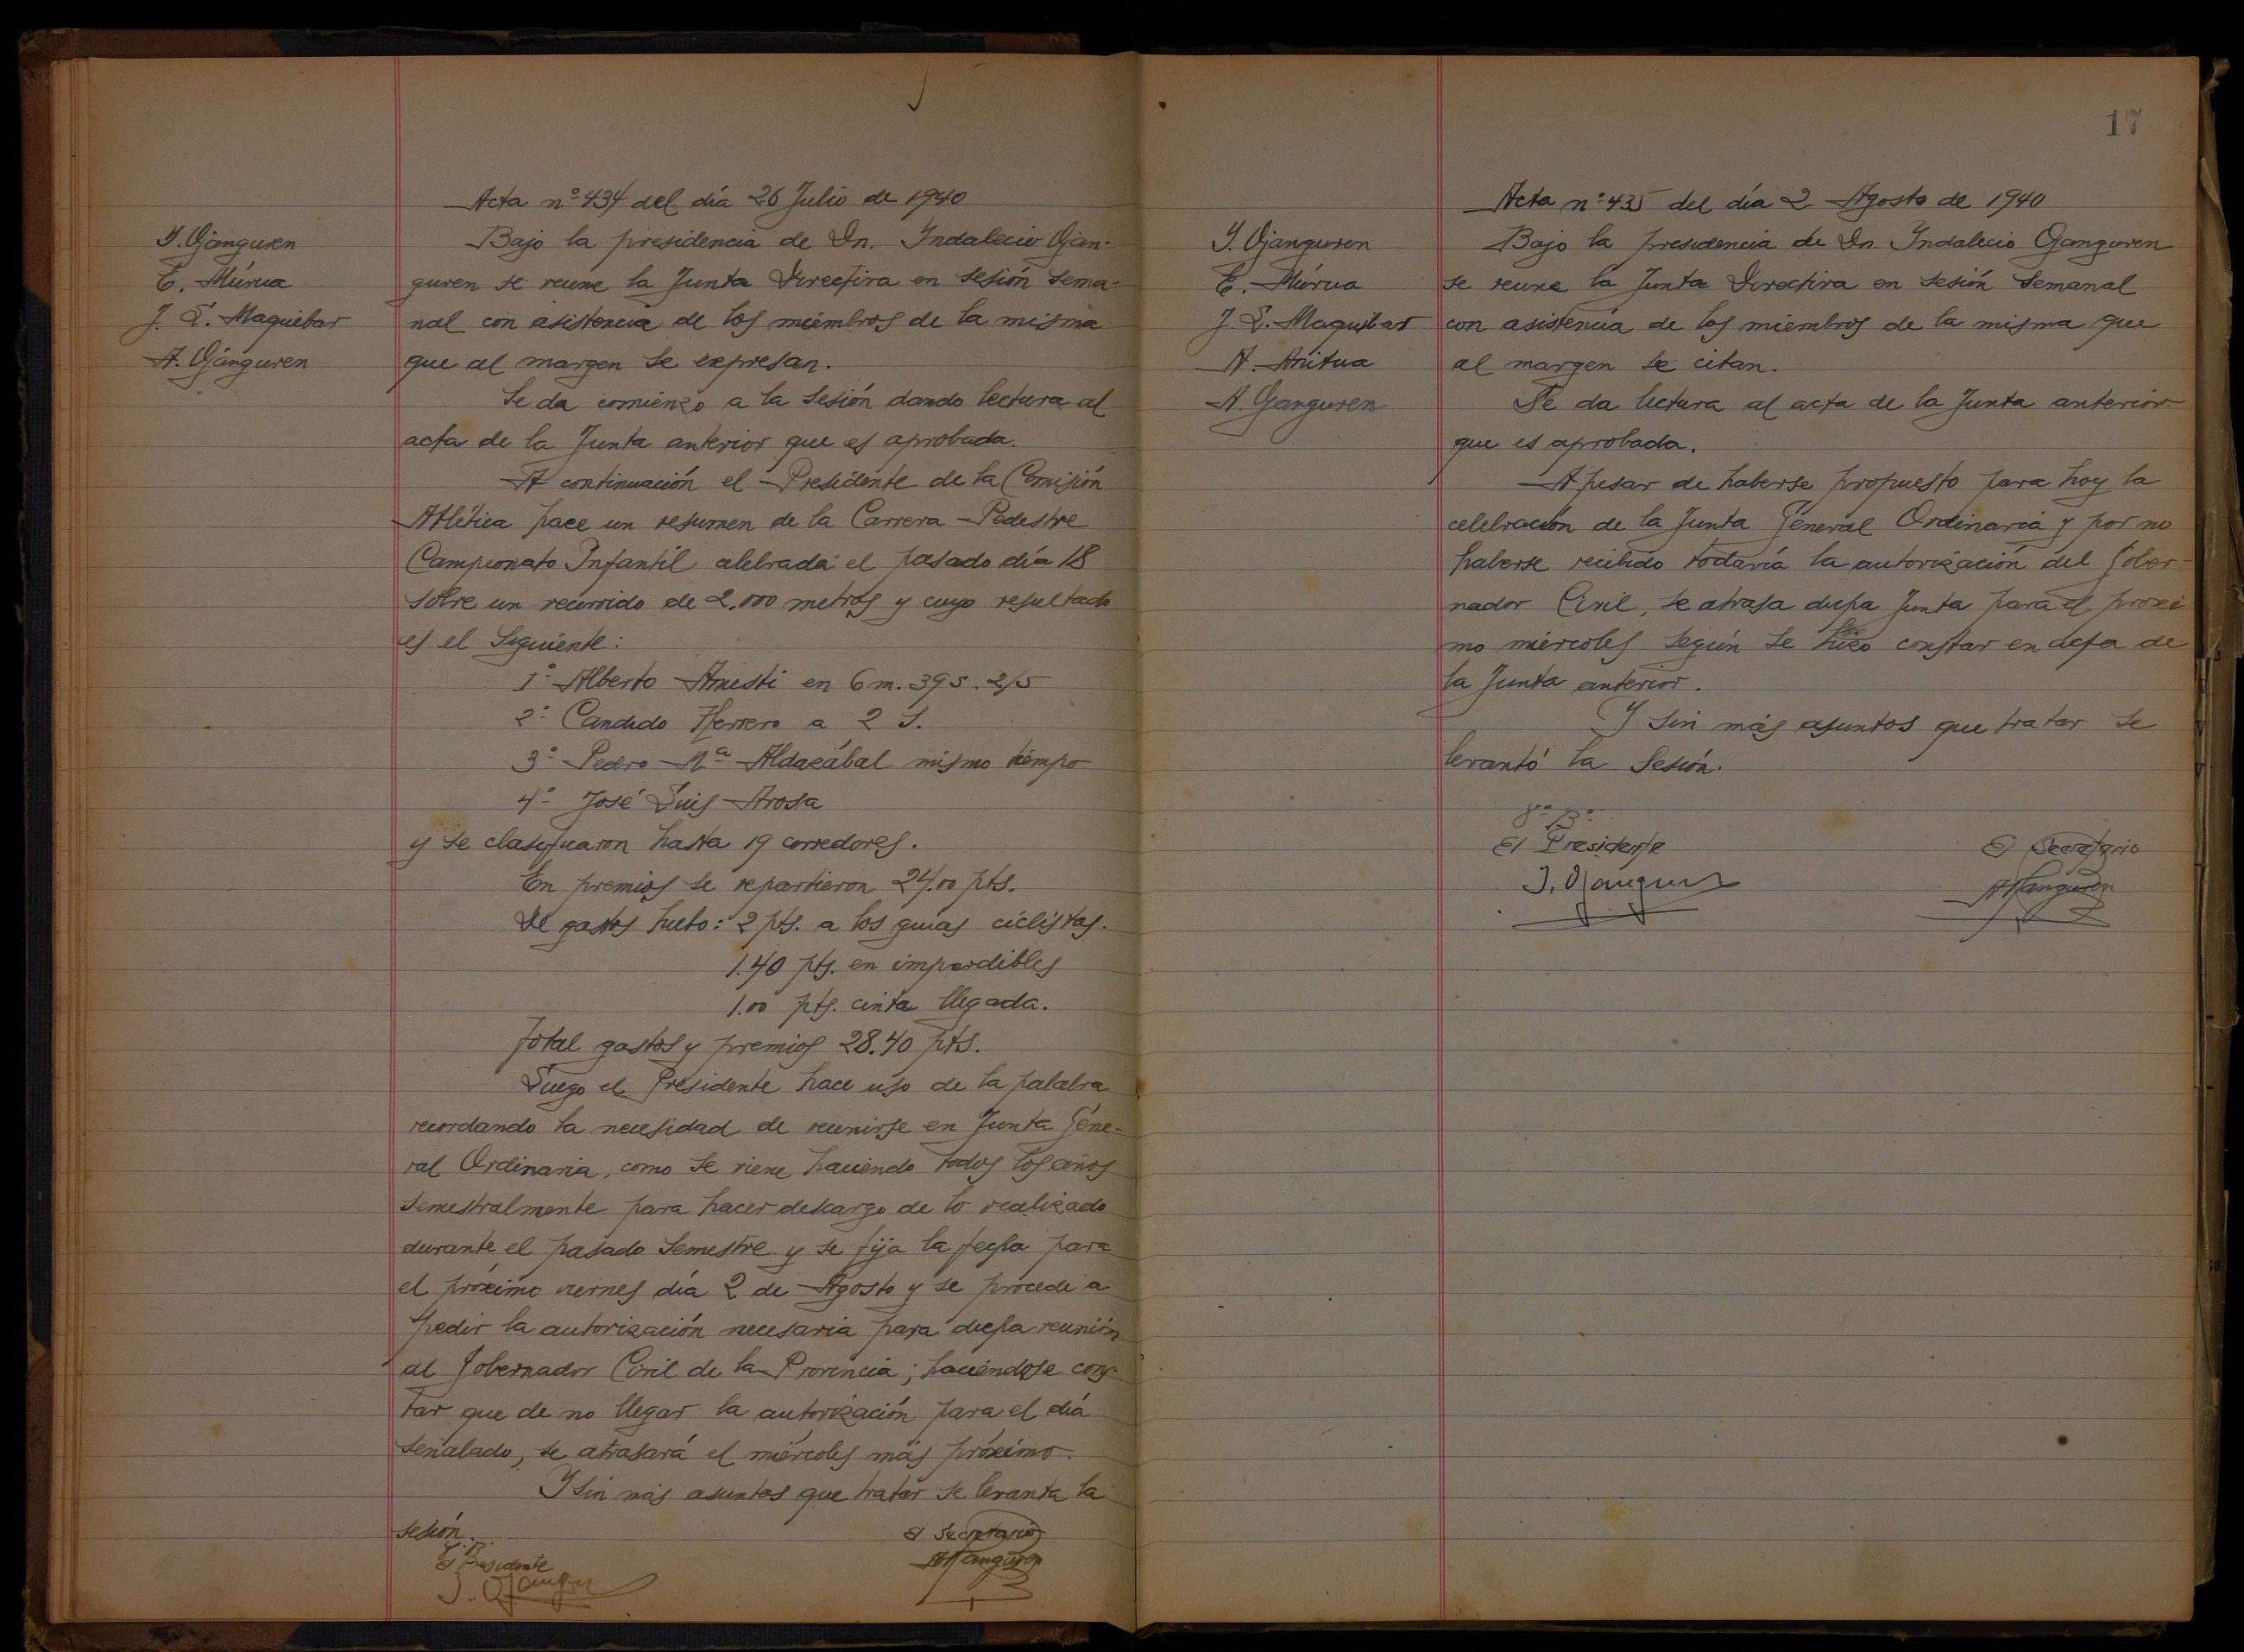 Acta nº 434 del día 26 Julio de 1940
I. Ojanguren
E. Múrua
J. L. Maguibar
A. Ojanguren
Bajo la presidencia de Dn. Indalecio Ojan-
guren se reune la Junta Directiva en sesión sema-
nal con asistencia de los miembros de la misma
que al margen se expresan.
Se da comienzo a la sesión dando lectura al
acta de la Junta anterior que es aprobada.
A continuación el Presidente de la Comisión
Atlética hace un resumen de la Carrera Pedestre
Campeonato Infantil celebrada el pasado día 18
sobre un recorrido de 2.000 metros y cuyo resultado
es el siguiente:
1º Alberto Amesti en 6 m. 39 s. 2/5
2º Candido Herrero a 2 s.
3º Pedro Mª Aldazábal mismo tiempo
4º José Luis Arosa
y se clasificaron hasta 19 corredores.
En premios se repartieron 24.00 pts.
De gastos hubo: 2 pts. a los guías ciclistas.
1.40 pts. en imperdibles
1.00 pts. cinta llegada.
Total gastos y premios 28.40 pts.
Luego el Presidente hace uso de la palabra
recordando la necesidad de reunirse en Junta Gene-
ral Ordinaria, como se viene haciendo todos los años
semestralmente para hacer descargo de lo realizado
durante el pasado semestre y se fija la fecha para
el próximo viernes día 2 de Agosto y se procede a
pedir la autorización necesaria para dicha reunión
al Gobernador Civil de la Provincia; haciéndose cons-
tar que de no llegar la autorización para el día
señalado, se atrasará el miércoles más próximo.
Y sin más asuntos que tratar se levanta la
sesión.
El Presidente
I. Ojanguren
El Secretario
A. Ojanguren
17
Acta nº 435 del día 2 Agosto de 1940
I. Ojanguren
E. Múrua
J. L. Maguibar
A. Anitua
A. Ganguren
Bajo la presidencia de Dn Indalecio Oanguren
se reune la Junta Directiva en sesión semanal
con asistencia de los miembros de la misma que
al margen se citan.
Se da lectura al acta de la Junta anterior
que es aprobada.
A pesar de haberse propuesto para hoy la
celebración de la Junta General Ordinaria y por no
haberse recibido todavía la autorización del Gober-
nador Civil, se atrasa dicha Junta para el proxi
mo miércoles según se hizo constar en acta de
la Junta anterior.
Y sin más asuntos que tratar se
levantó la sesión.
El Presidente
I. Ojanguren
El Secretario
A. Ojanguren